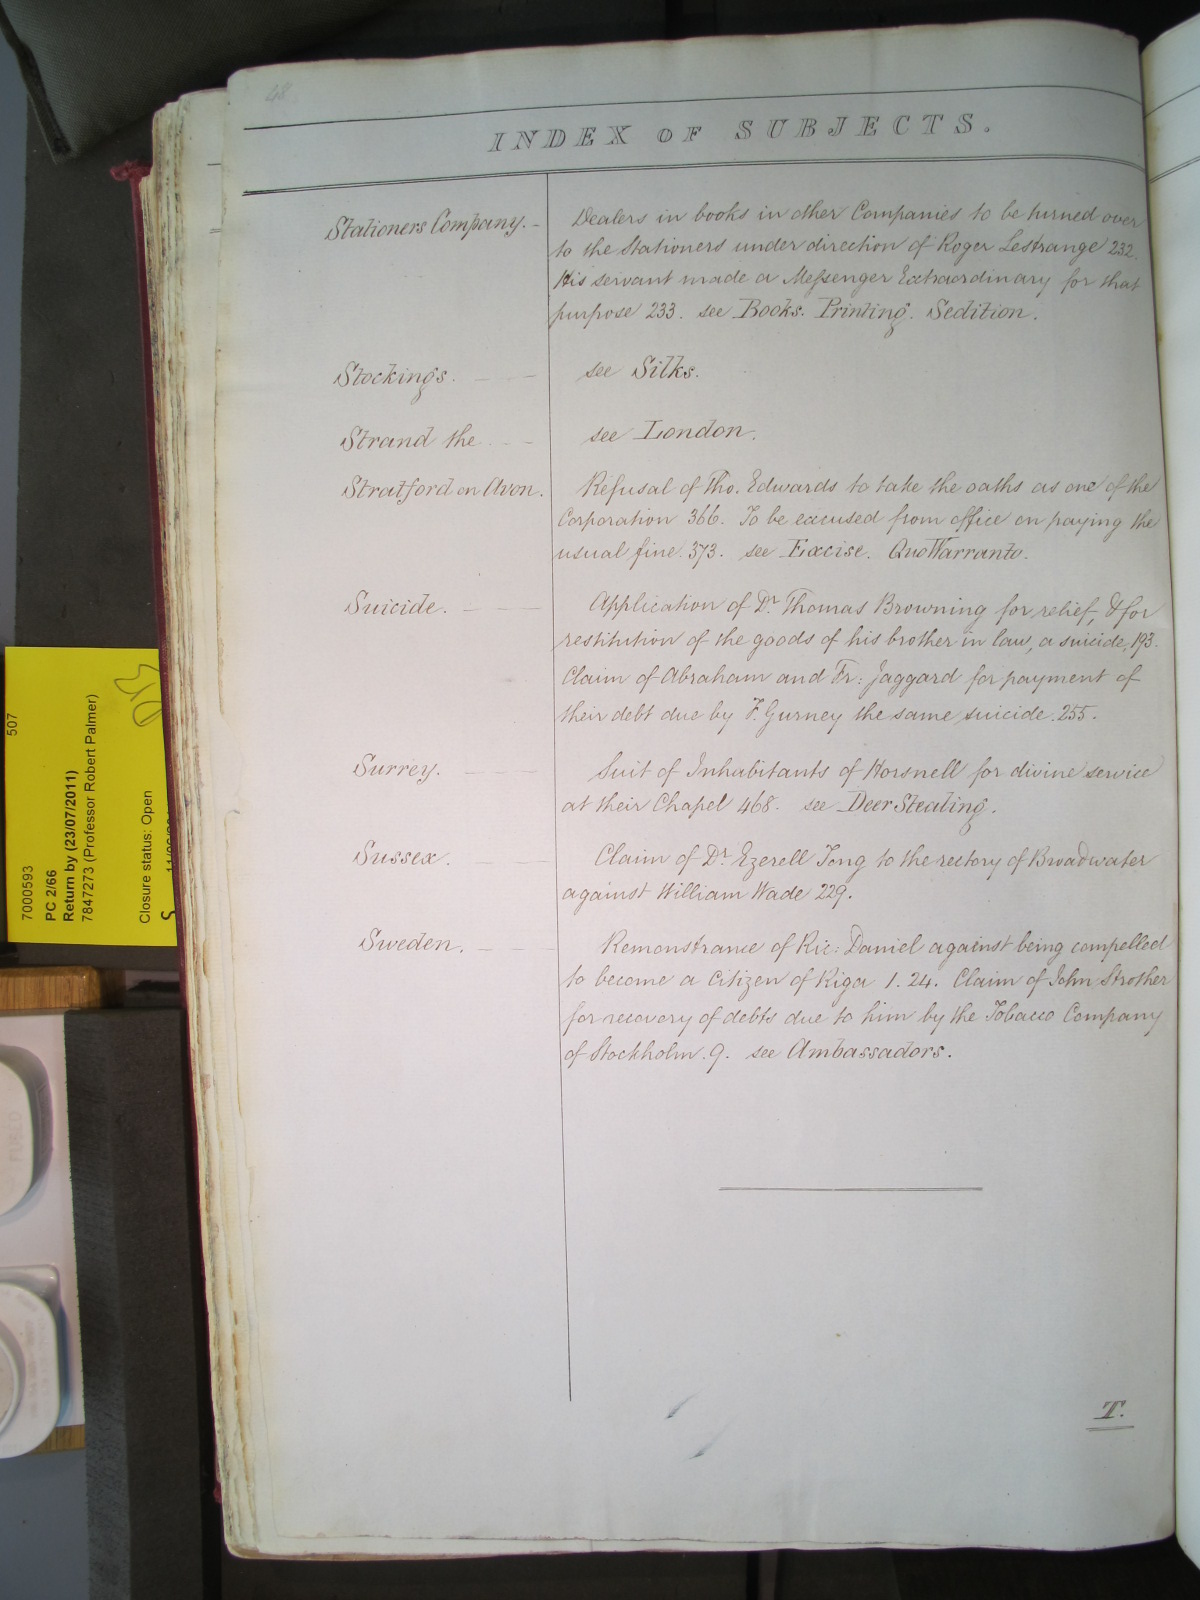 48
INDEX OF SUBJECTS.
Stationers Company. - Dealers in books in other Companies to be turned over
to the Stationers under direction of Roger Lestrange 232.
His servant made a Messenger Extraordinary for that
purpose 233. see Books. Printing. Sedition.
Stockings. see Silks.
Strand the see London.
Stratford on Avon. Refusal of Tho. Edwards to take the oaths as one of the
Corporation 366. To be excused from office on paying the
usual fine. 373. see Excise. Quo Warranto.
Suicide. Application of Dr. Thomas Browning for relief, & for
restitution of the goods of his brother in law, a suicide, 193.
Claim of Abraham and Fr: Jaggard for payment of
their debt due by F. Gurney the same suicide. 255.
Surrey. Suit of Inhabitants of Horsnell for divine service
at their Chapel 468. see Deer Stealing.
Sussex. Claim of Dr. Ezerell Tong to the rectory of Broadwater
against William Wade 229.
Sweden. Remonstrance of Ric: Daniel against being compelled
to become a Citizen of Riga 1. 24. Claim of John Strother
for recovery of debts due to him by the Tobacco Company
of Stockholm. 9. see Ambassadors.
T.
507
7000593
PC 2/66
Return by (23/07/2011)
7847273 (Professor Robert Palmer)
Closure status: Open